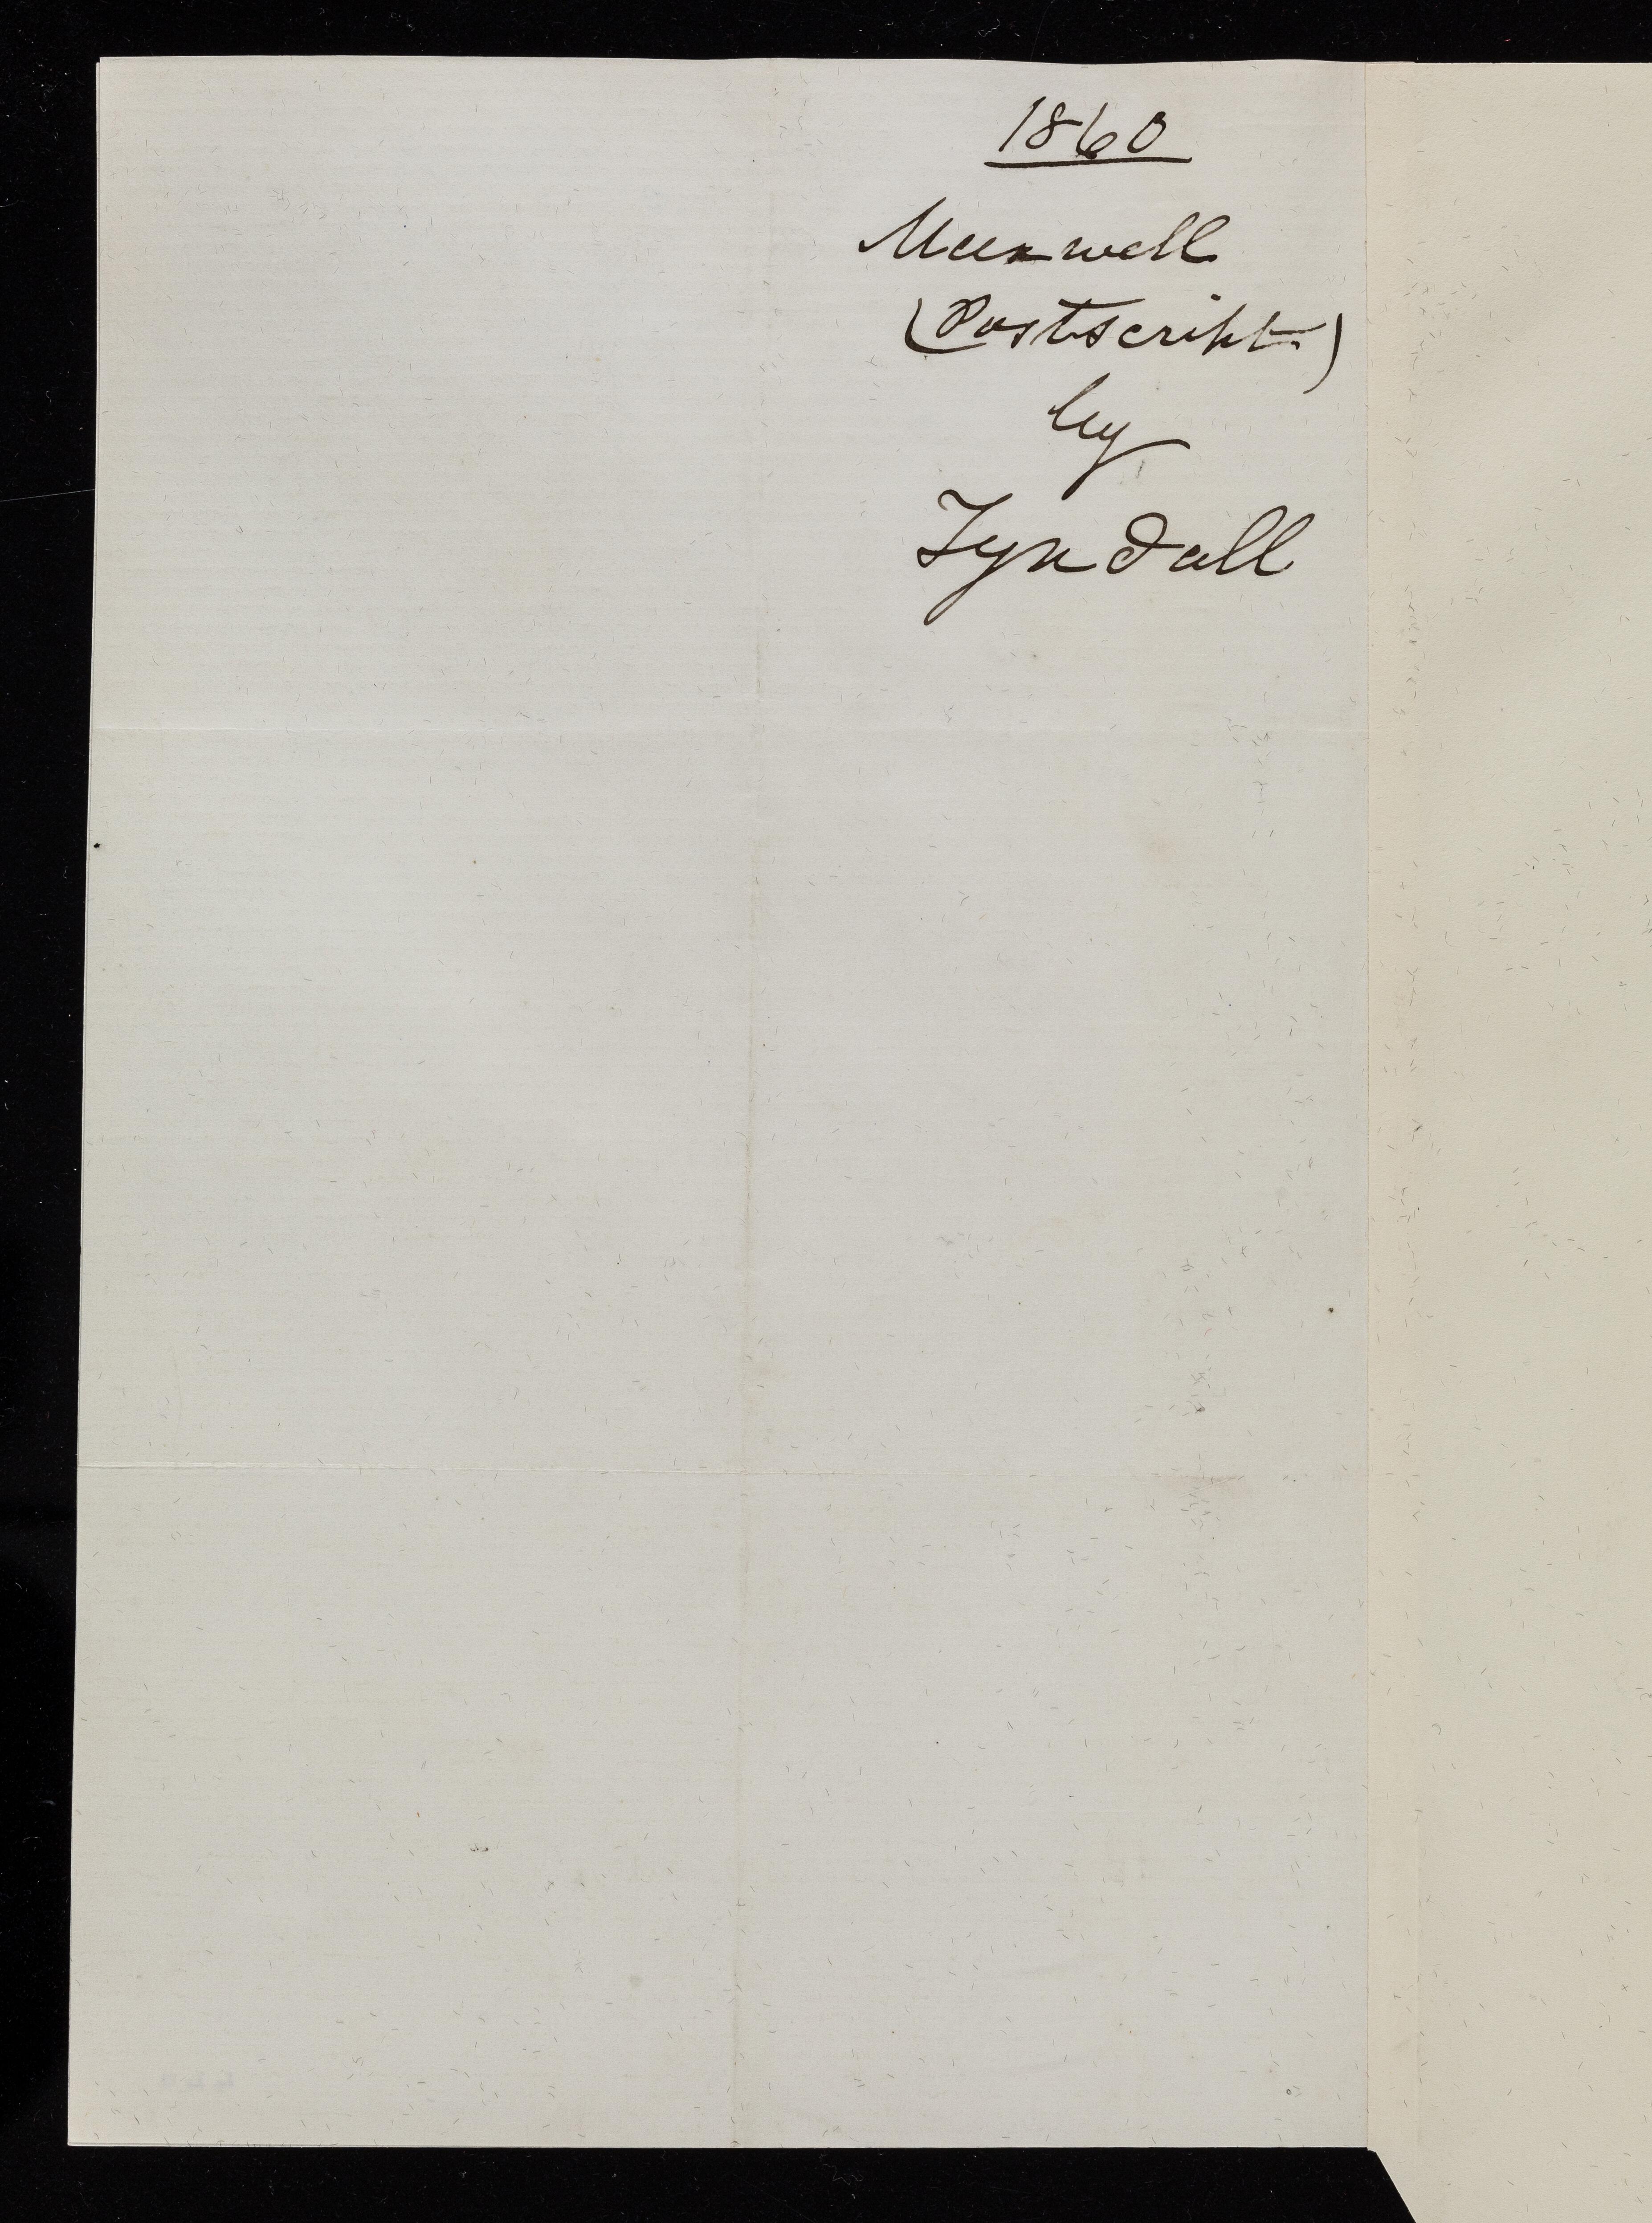 1860
Maxwell
(Postscript)
by
Tyndall